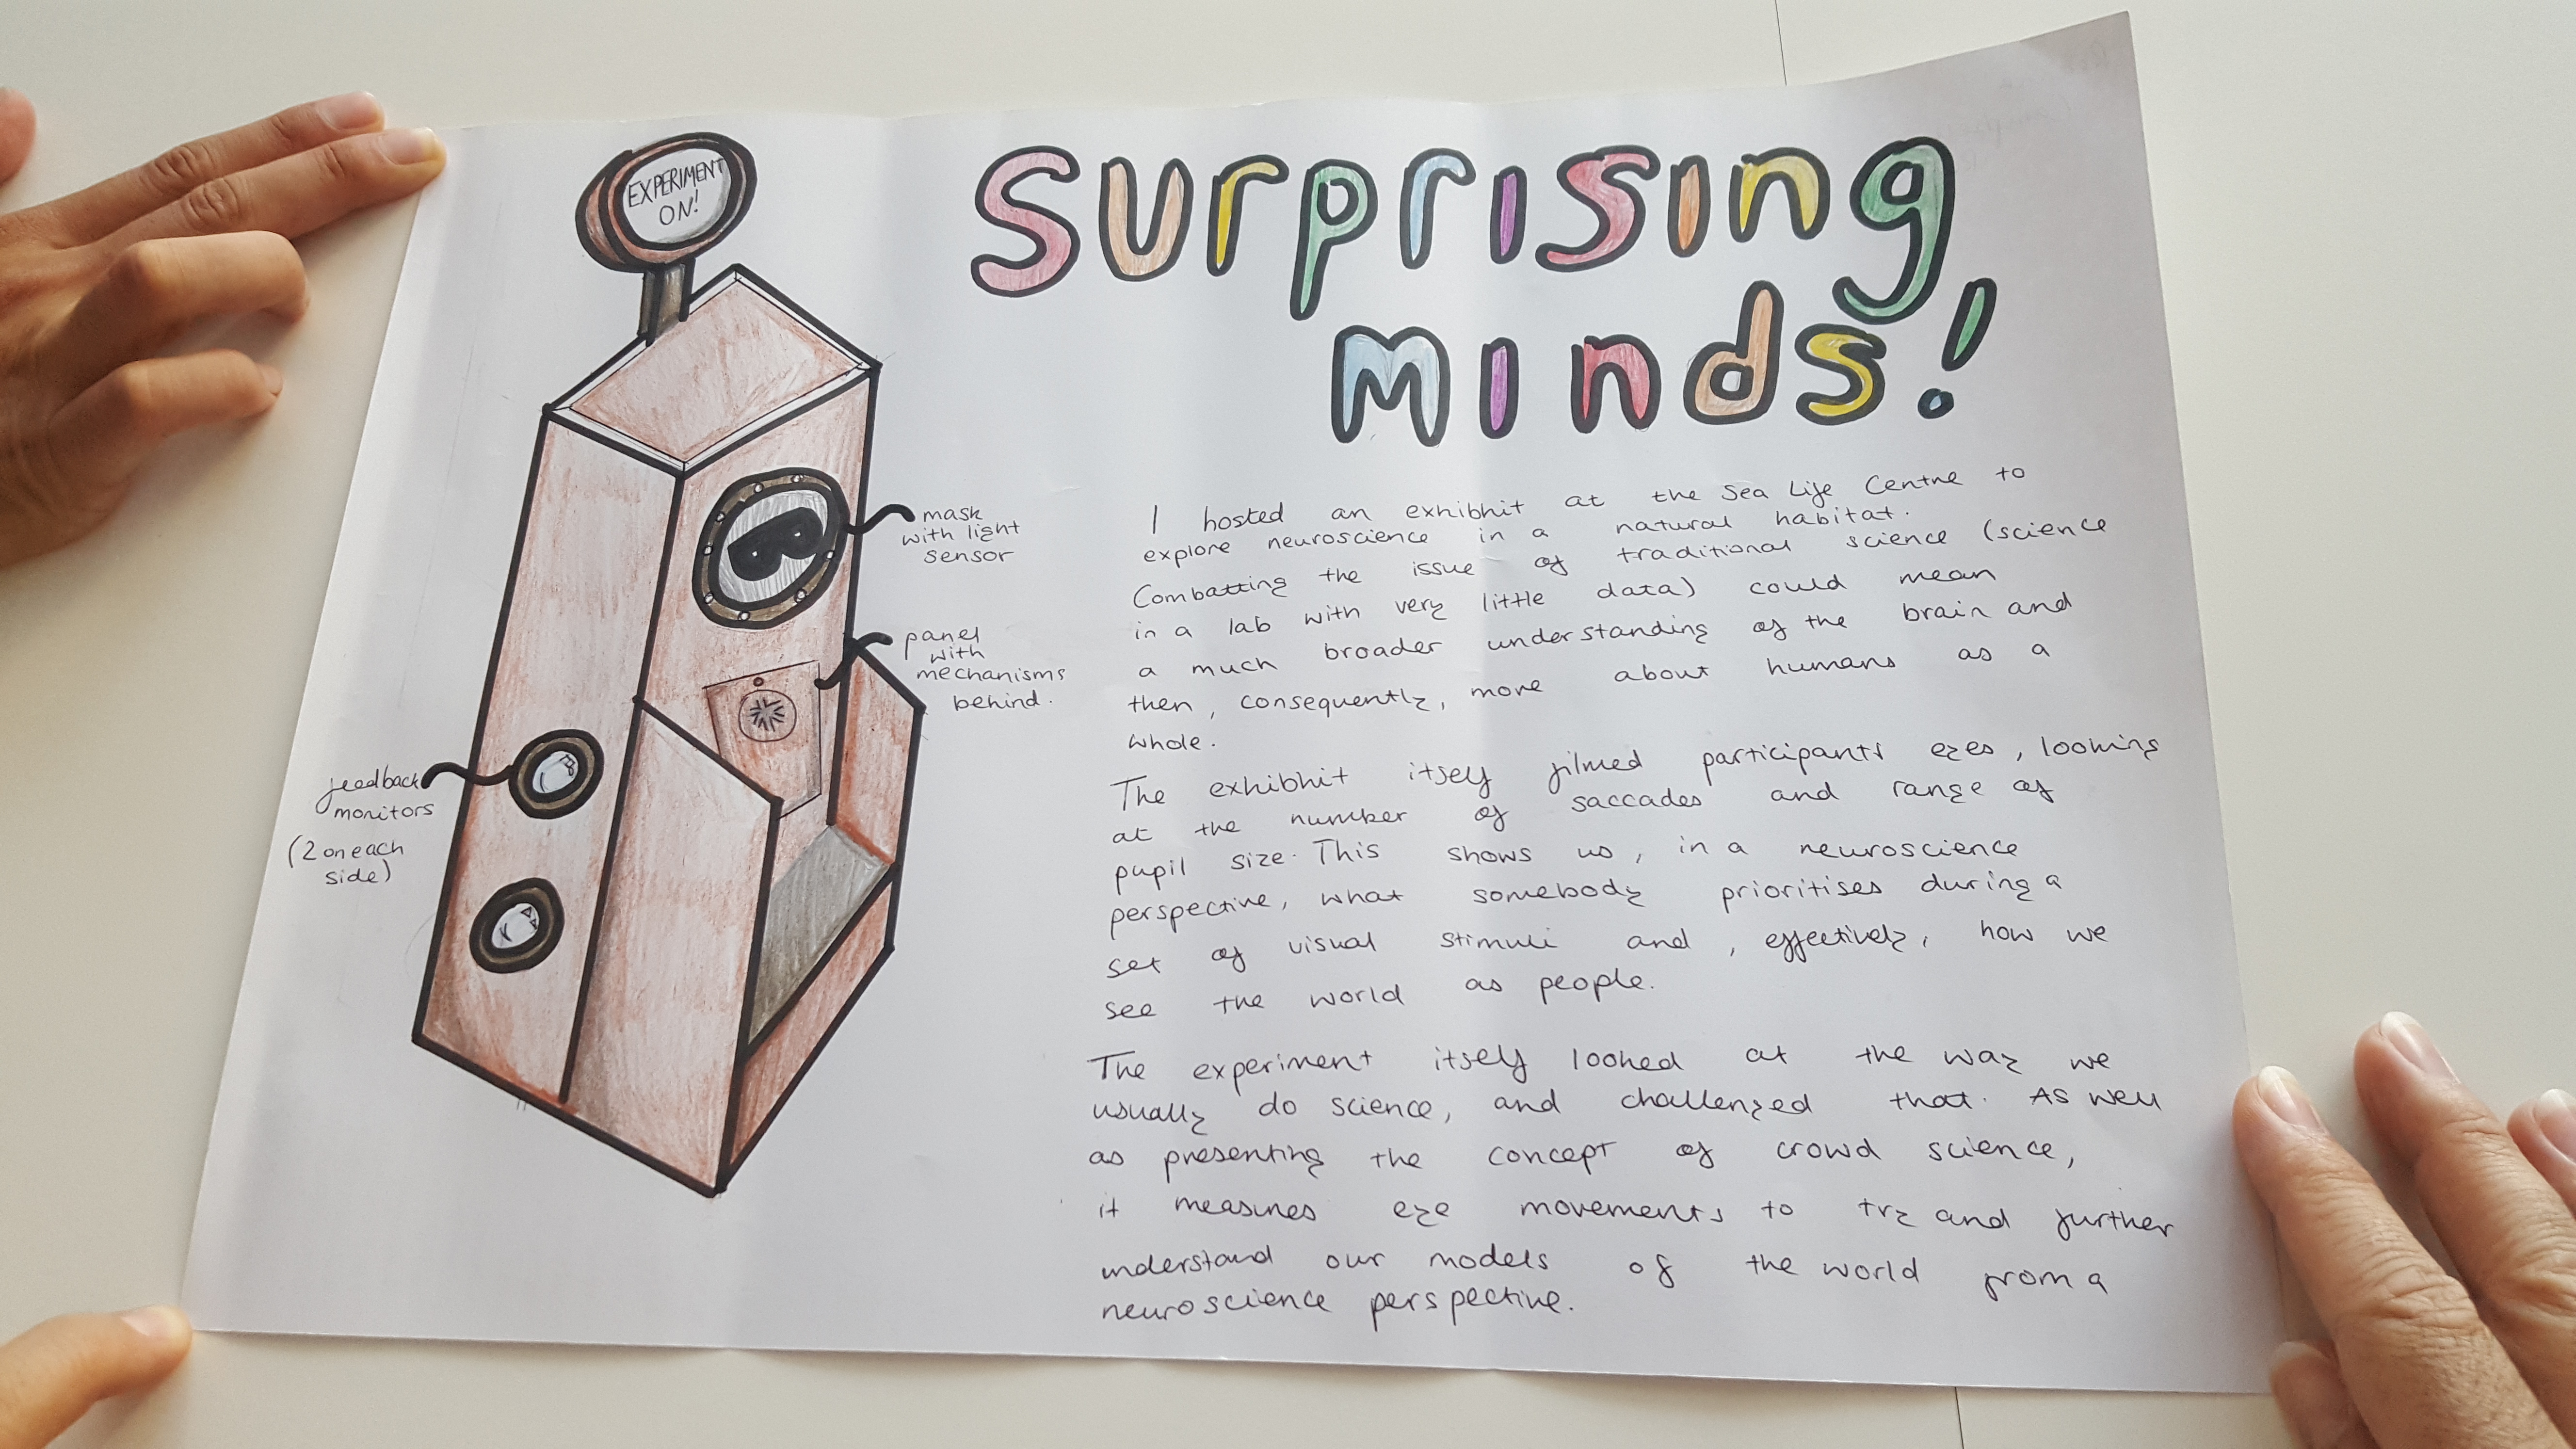 Surprising
Minds!
EXPERIMENT
ON!
mask
with light
sensor
panel
with
mechanisms
behind.
feedback
monitors
(2 on each
side)
I hosted an exhibit at the Sea Life Centre to
explore neuroscience in a natural habitat.
Combatting the issue of traditional science (science
in a lab with very little data) could mean
a much broader understanding of the brain and
then, consequently, more about humans as a
whole.
The exhibit itself filmed participants eyes, looking
at the number of saccades and range of
pupil size. This shows us, in a neuroscience
perspective, what somebody prioritises during a
set of visual stimuli and, effectively, how we
see the world as people.
The experiment itself looked at the way we
usually do science, and challenged that. As well
as presenting the concept of crowd science,
it measures eye movements to try and further
understand our models of the world from a
neuroscience perspective.